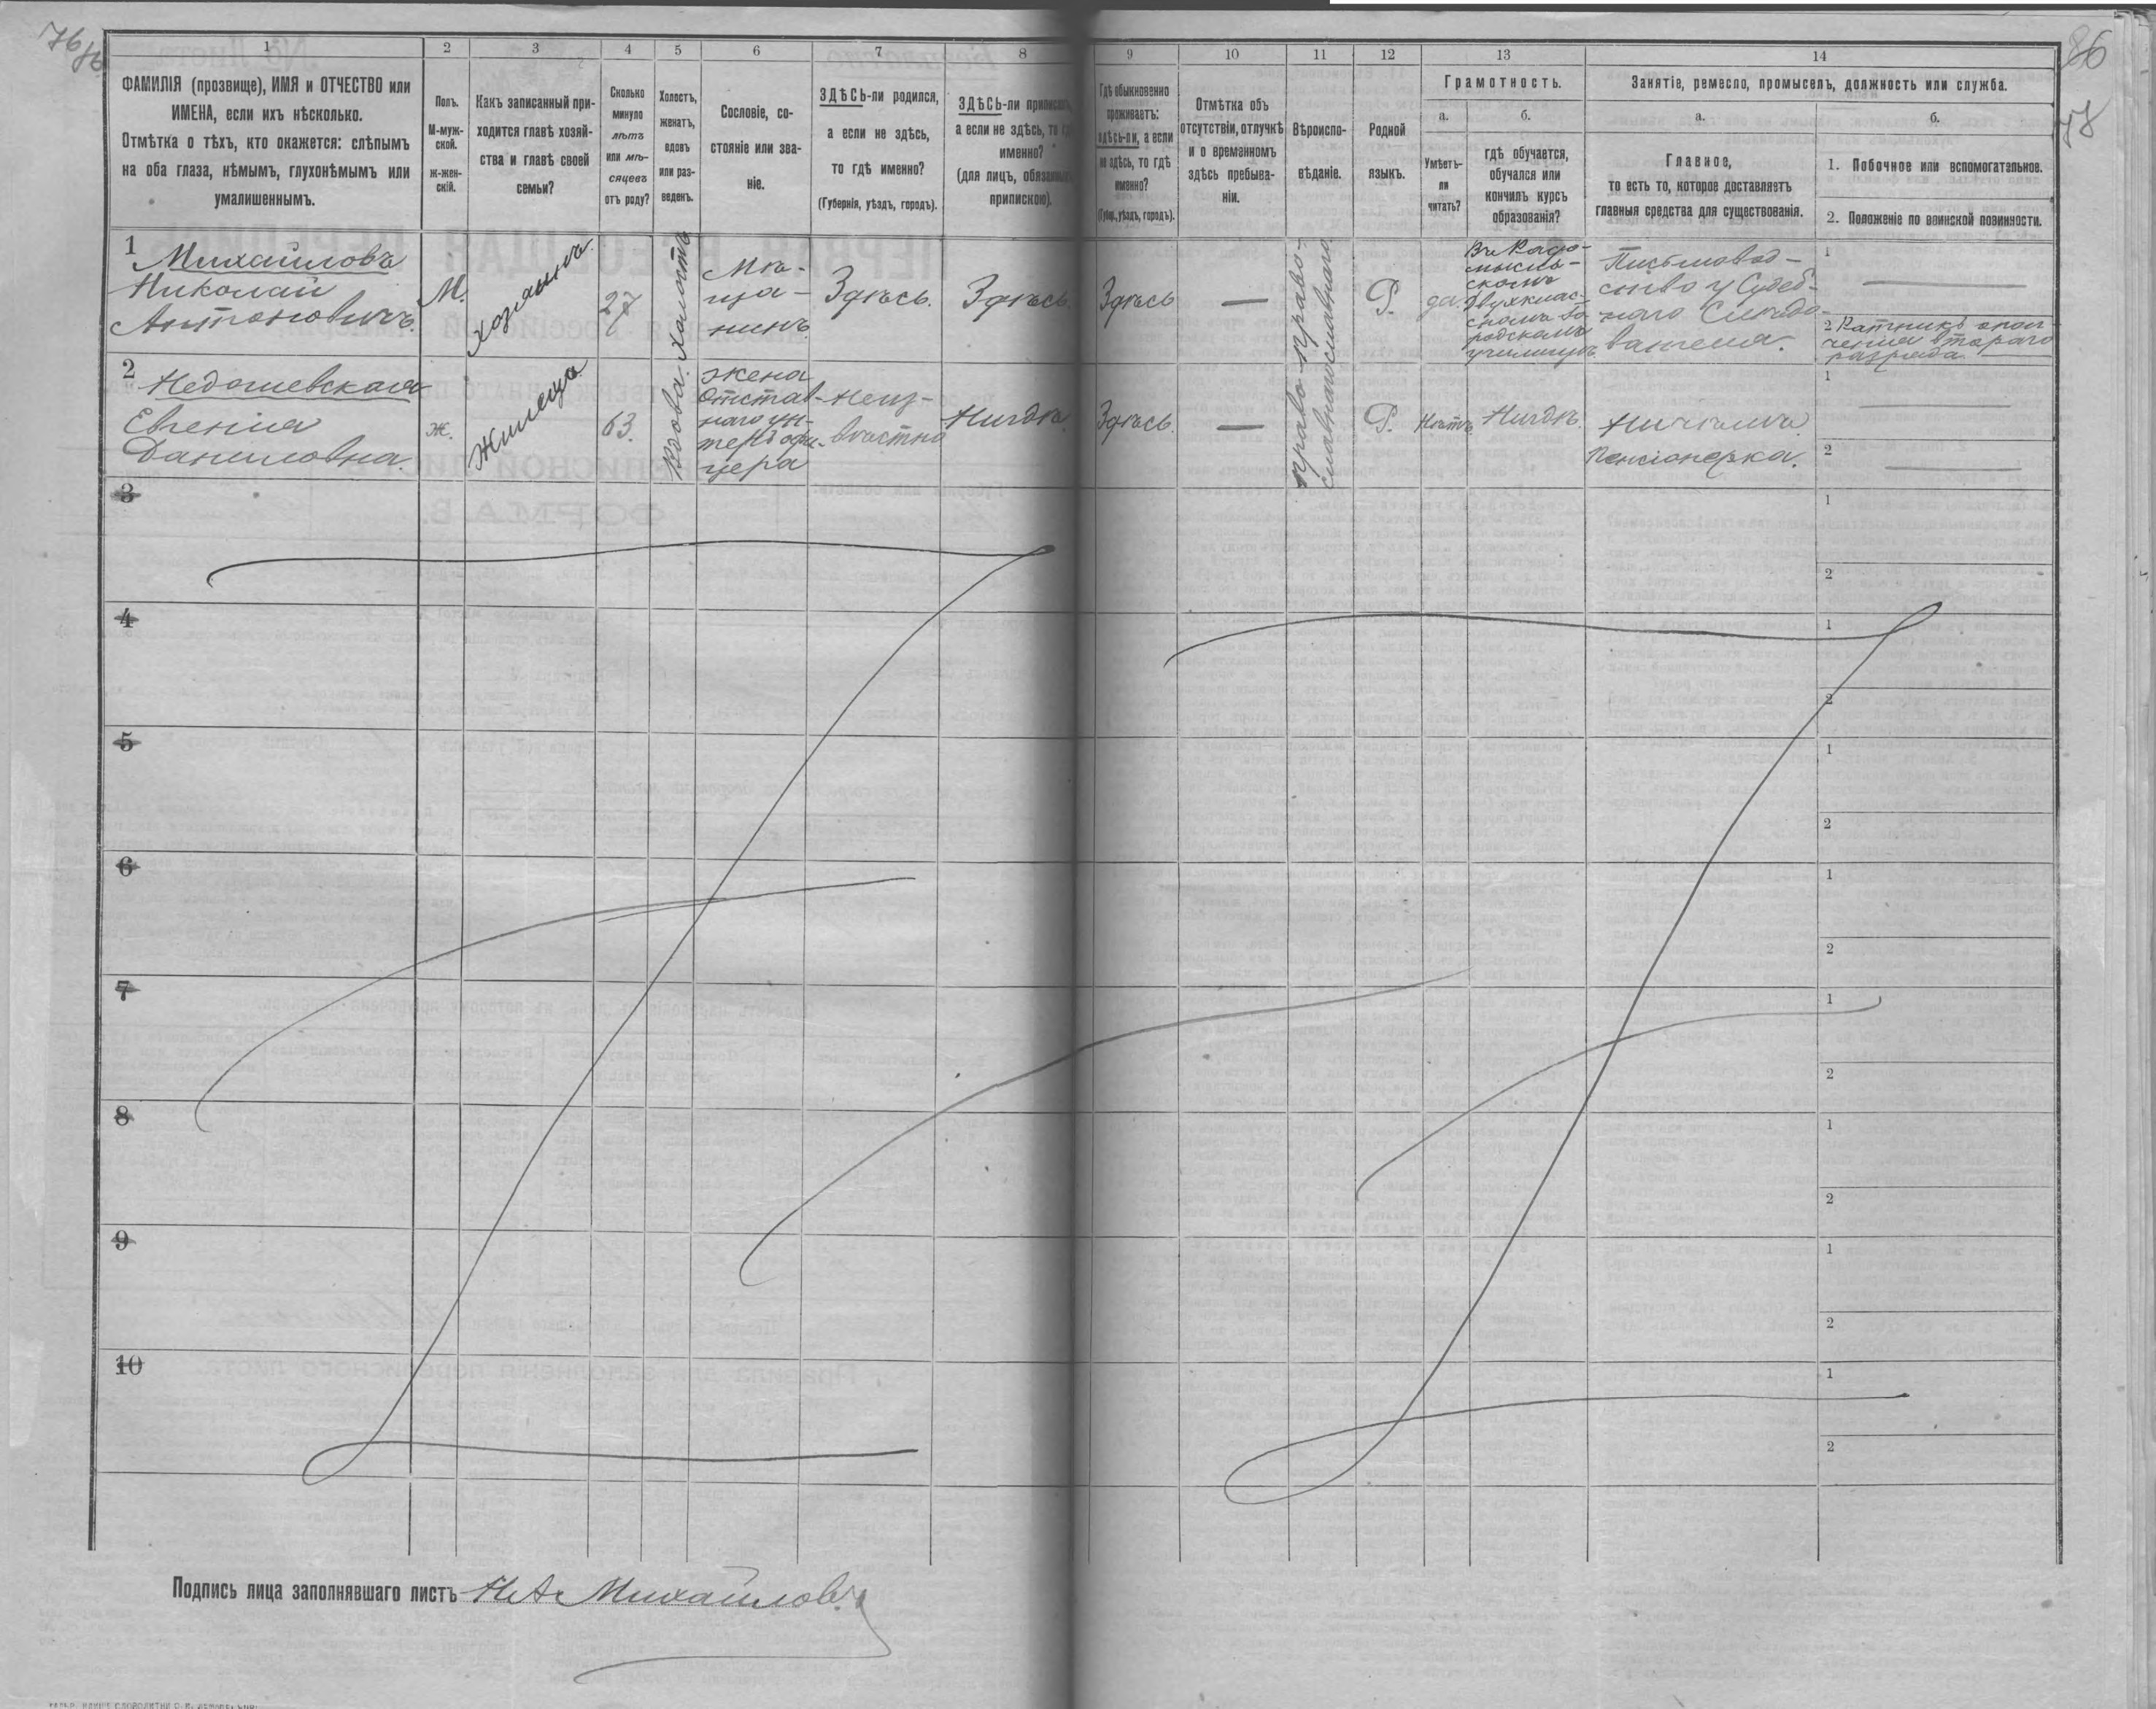 76
76
86
78
1
2
3
4
5
6
7
8
9
10
11
12
13
14
ФАМИЛІЯ (прозвище), ИМЯ и ОТЧЕСТВО или
ИМЕНА, если ихъ нѣсколько.
Отмѣтка о тѣхъ, кто окажется: слѣпымъ
на оба глаза, нѣмымъ, глухонѣмымъ или
умалишеннымъ.
Полъ.
М-муж-
ской.
ж-жен-
скій.
Какъ записанный при-
ходится главѣ хозяй-
ства и главѣ своей
семьи?
Сколько
минуло
лѣтъ
или мѣ-
сяцевъ
отъ роду?
Холостъ,
женатъ,
вдовъ
или раз-
веденъ.
Сословіе, со-
стояніе или зва-
ніе.
ЗДѢСЬ-ли родился,
а если не здѣсь,
то гдѣ именно?
(Губернія, уѣздъ, городъ).
ЗДѢСЬ-ли приписанъ,
а если не здѣсь, то гдѣ
именно?
(для лицъ, обязанныхъ
припискою).
Гдѣ обыкновенно
проживаетъ:
здѣсь-ли, а если
не здѣсь, то гдѣ
именно?
(Губ., уѣздъ, городъ).
Отмѣтка объ
отсутствіи, отлучкѣ
и о временномъ
здѣсь пребыва-
ніи.
Вѣроиспо-
вѣданіе.
Родной
языкъ.
Грамотность.
а.
Умѣетъ-
ли
читать?
б.
гдѣ обучается,
обучался или
кончилъ курсъ
образованія?
Занятіе, ремесло, промыселъ, должность или служба.
а.
Главное,
то есть то, которое доставляетъ
главныя средства для существованія.
б.
1. Побочное или вспомогательное.
2. Положеніе по воинской повинности.
1
Михайловъ
Николай
Антоновичъ.
М.
хозяинъ.
27
холостъ
Мѣ-
ща-
нинъ
Здѣсь.
Здѣсь.
Здѣсь
—
право-
славнаго
Р.
да.
Въ Радо-
мысль-
скомъ
двухклас-
сномъ го-
родскомъ
училищѣ.
Письмовод-
ство у Судеб-
наго Слѣдо-
вателя.
1
2 Ратникъ опол-
ченія втораго
разряда
2
Недошевская
Евгенія
Даниловна.
Ж.
Жилица
63.
вдова.
жена
Отстав-
наго ун-
теръ офи-
цера
Неиз-
вѣстно
Нигдѣ
Здѣсь.
—
право-
славнаго
Р.
Нѣтъ
Нигдѣ.
Ничѣмъ.
Пенсіонерка.
1
2
3
1
2
4
1
2
5
1
2
6
1
2
7
1
2
8
1
2
9
1
2
10
1
2
Подпись лица заполнявшаго листъ Н А Михайловъ